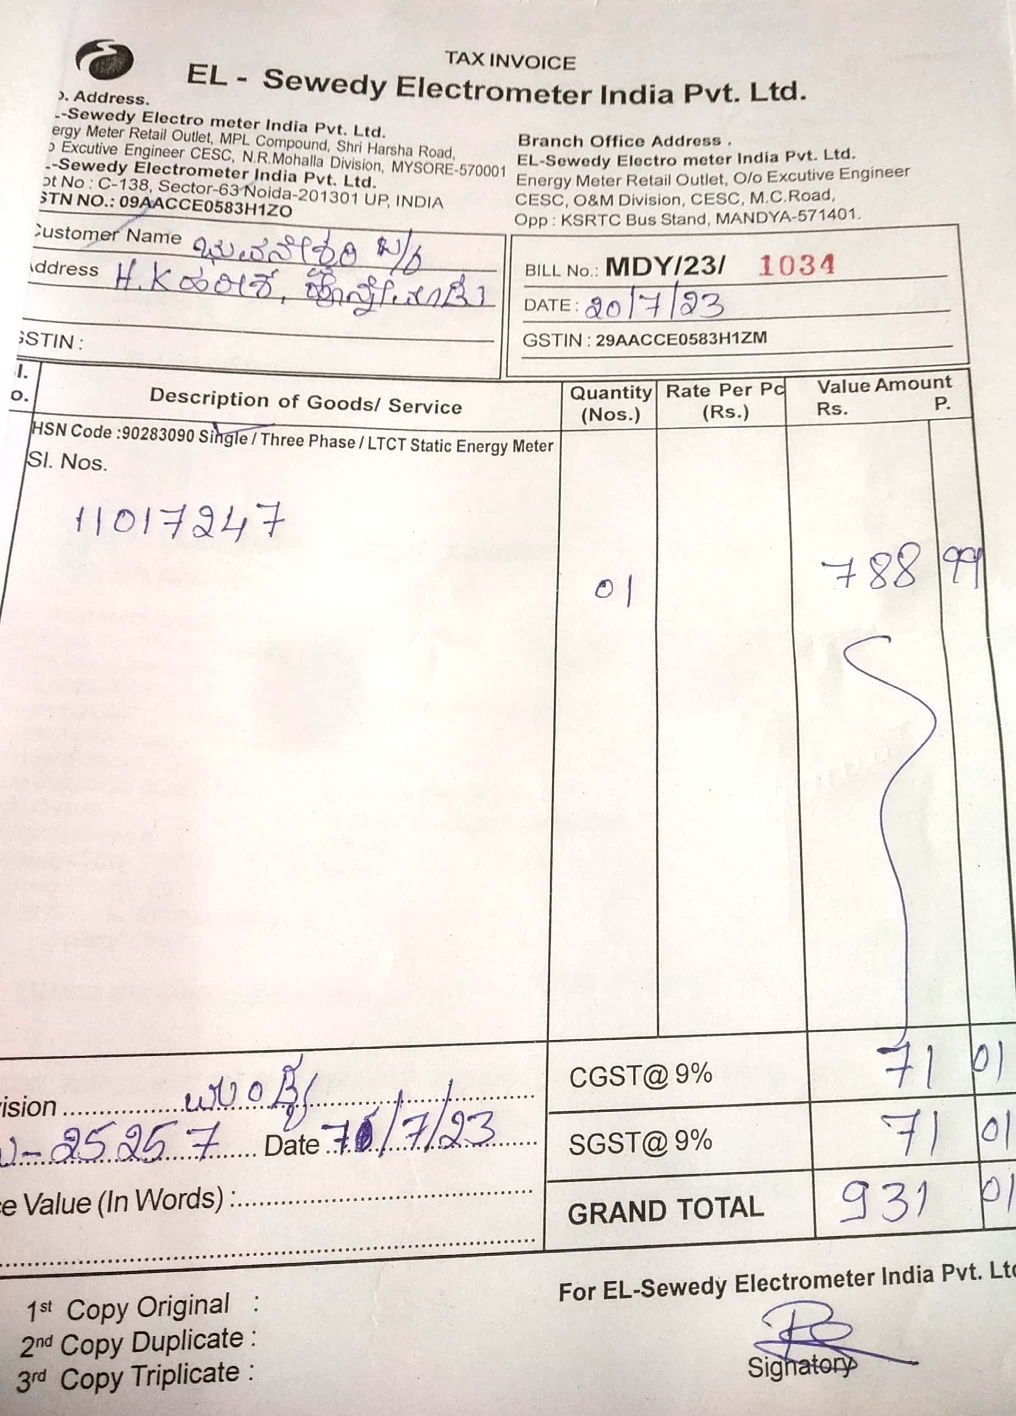 TAX INVOICE
EL - Sewedy Electrometer India Pvt. Ltd.
Address.
-Sewedy Electro meter India Pvt. Ltd.
ergy Meter Retail Outlet, MPL Compound, Shri Harsha Road,
Excutive Engineer CESC, N.R.Mohalla Division, MYSORE-570001
-Sewedy Electrometer India Pvt. Ltd.
ot No : C-138, Sector-63 Noida-201301 UP, INDIA
STN NO.: 09AACCE0583H1ZO
Branch Office Address .
EL-Sewedy Electro meter India Pvt. Ltd.
Energy Meter Retail Outlet, O/o Excutive Engineer
CESC, O&M Division, CESC, M.C.Road,
Opp : KSRTC Bus Stand, MANDYA-571401.
Customer Name
Address H.K
GSTIN :
BILL No.: MDY/23/ 1034
DATE : 20/7/23
GSTIN : 29AACCE0583H1ZM
l. o. Description of Goods/ Service Quantity (Nos.) Rate Per Pc (Rs.) Value Amount Rs. P.
HSN Code :90283090 Single / Three Phase / LTCT Static Energy Meter
Sl. Nos.
11017247
01 788 99
CGST@ 9% 71 01
ision
SGST@ 9% 71 01
-25257 Date /7/23
e Value (In Words) :
GRAND TOTAL 931 01
For EL-Sewedy Electrometer India Pvt. Ltd
1st Copy Original :
2nd Copy Duplicate :
3rd Copy Triplicate :
Signatory